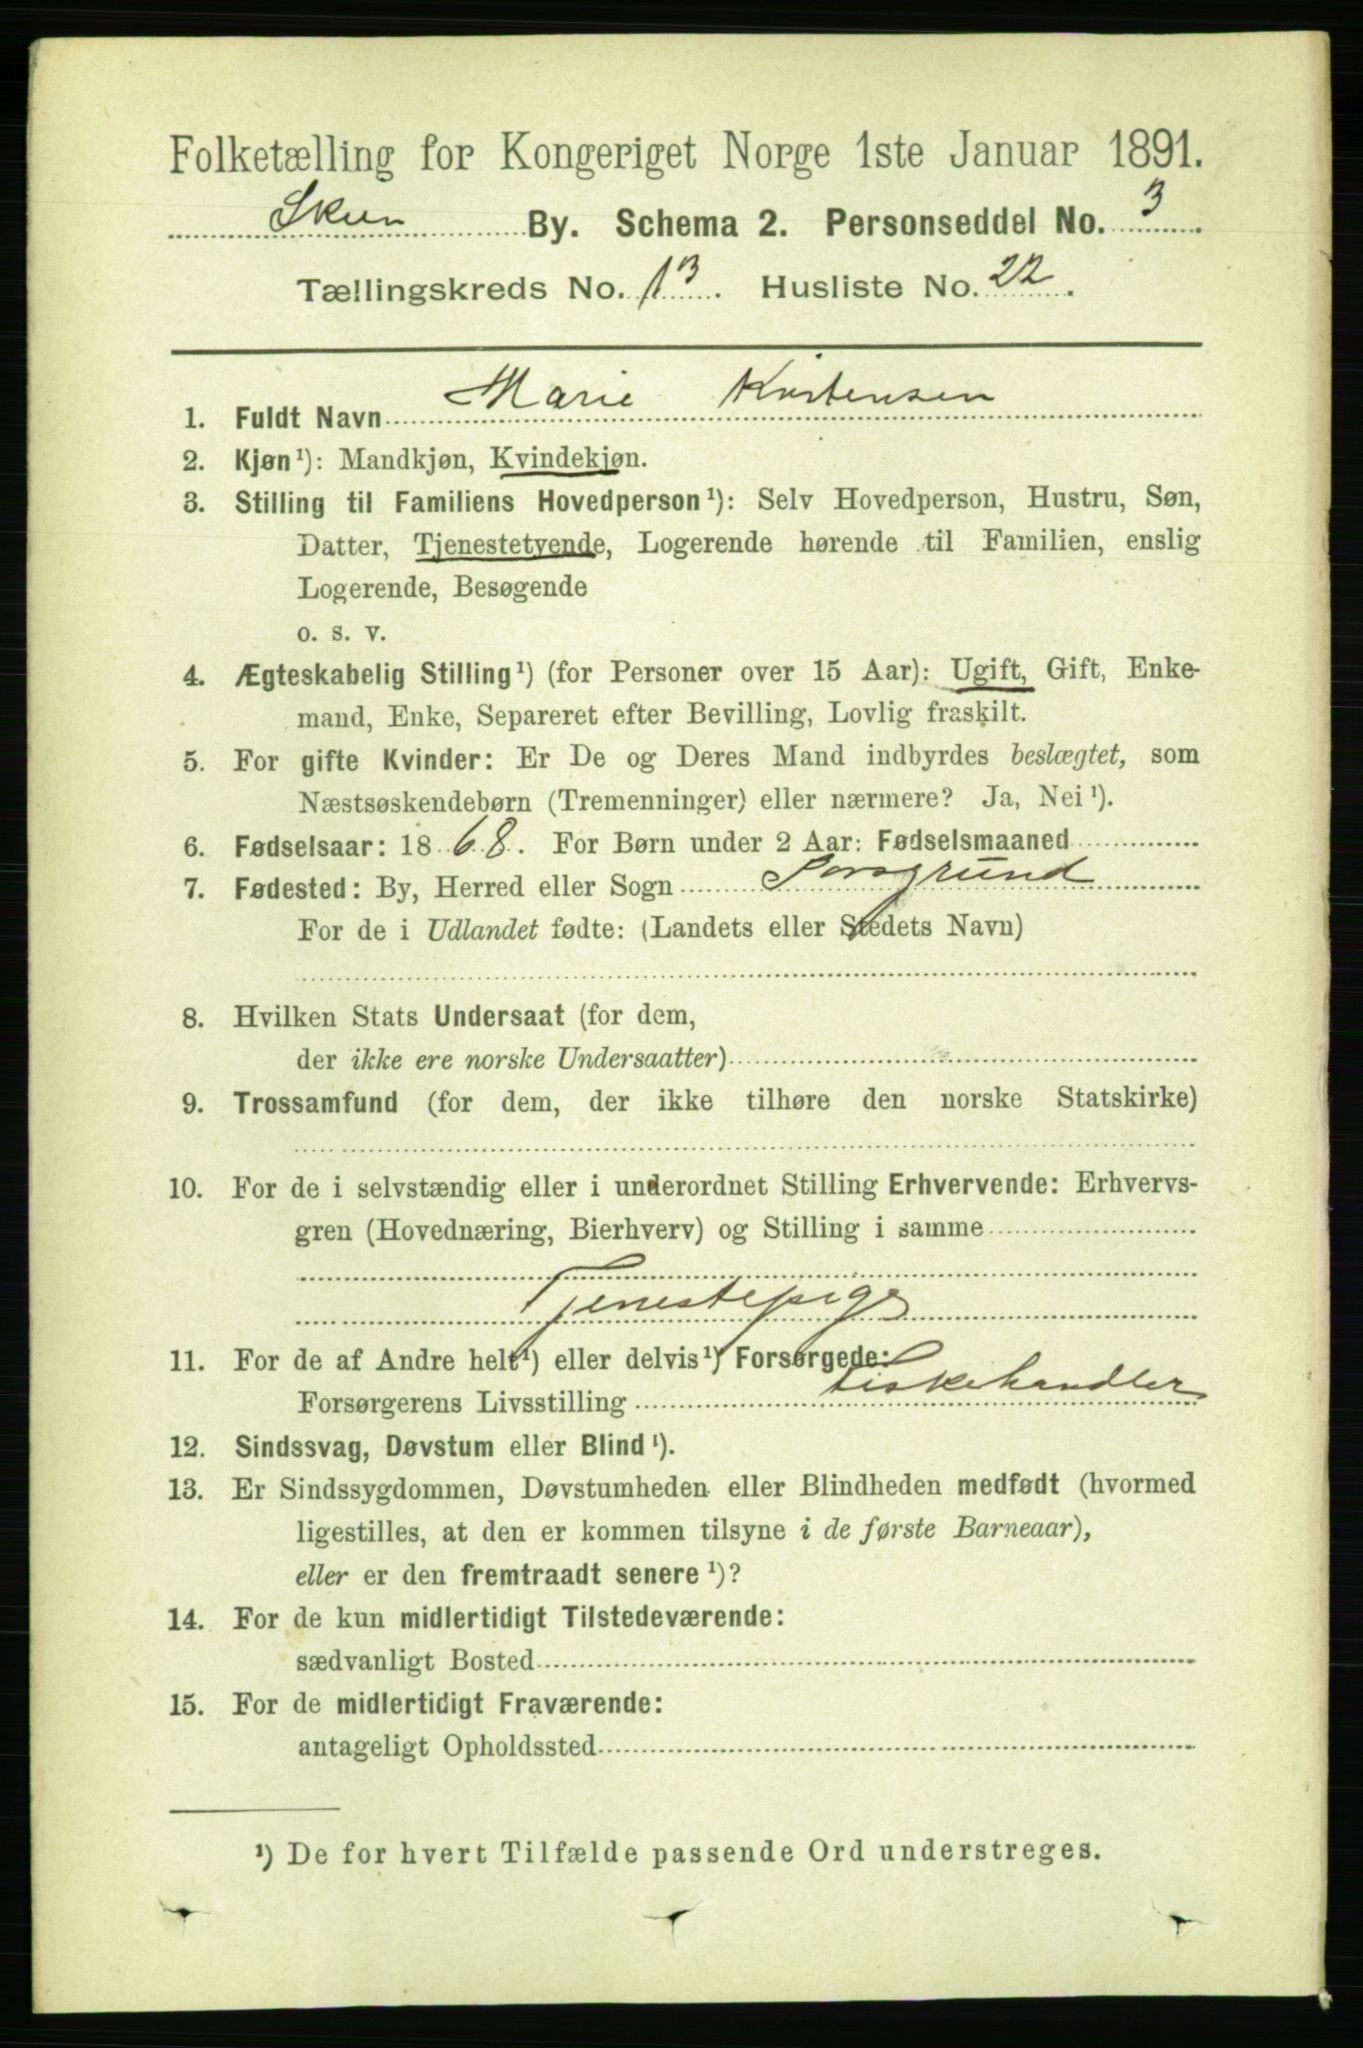 Folketælling for Kongeriget Norge 1ste Januar 1891.
Skien By. Schema 2. Personseddel No. 3.
Tællingskreds No. 13. Husliste No. 22.
1. Fuldt Navn Marie Kristensen
2. Kjøn¹): Mandkjøn, Kvindekjøn.
3. Stilling til Familiens Hovedperson¹): Selv Hovedperson, Hustru, Søn,
Datter, Tjenestetyende, Logerende hørende til Familien, enslig
Logerende, Besøgende
o. s. v.
4. Ægteskabelig Stilling¹) (for Personer over 15 Aar): Ugift, Gift, Enke-
mand, Enke, Separeret efter Bevilling, Lovlig fraskilt.
5. For gifte Kvinder: Er De og Deres Mand indbyrdes beslægtet, som
Næstsøskendebørn (Tremenninger) eller nærmere? Ja, Nei¹).
6. Fødselsaar: 1868. For Børn under 2 Aar: Fødselsmaaned
7. Fødested: By, Herred eller Sogn Porsgrund
For de i Udlandet fødte: (Landets eller Stedets Navn)
8. Hvilken Stats Undersaat (for dem,
der ikke ere norske Undersaatter)
9. Trossamfund (for dem, der ikke tilhøre den norske Statskirke)
10. For de i selvstændig eller i underordnet Stilling Erhvervende: Erhvervs-
gren (Hovednæring, Bierhverv) og Stilling i samme
Tjenestepige
11. For de af Andre helt¹) eller delvis¹) Forsørgede:
Forsørgerens Livsstilling Fiskehandler
12. Sindssvag, Døvstum eller Blind¹).
13. Er Sindssygdommen, Døvstumheden eller Blindheden medfødt (hvormed
ligestilles, at den er kommen tilsyne i de første Barneaar),
eller er den fremtraadt senere¹)?
14. For de kun midlertidigt Tilstedeværende:
sædvanligt Bosted
15. For de midlertidigt Fraværende:
antageligt Opholdssted
¹) De for hvert Tilfælde passende Ord understreges.